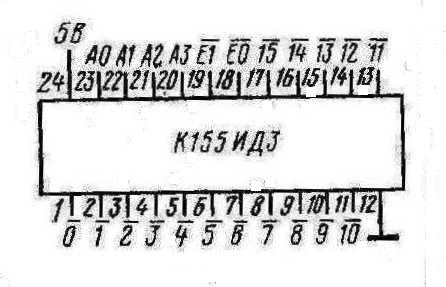 5В
А0 А1 А2 А3 Е̅1̅ Е̅0̅ 1̅5̅ 1̅4̅ 1̅3̅ 1̅2̅ 1̅1̅
24 23 22 21 20 19 18 17 16 15 14 13
К155ИД3
1 2 3 4 5 6 7 8 9 10 11 12
0̅ 1̅ 2̅ 3̅ 4̅ 5̅ 6̅ 7̅ 8̅ 9̅ 1̅0̅